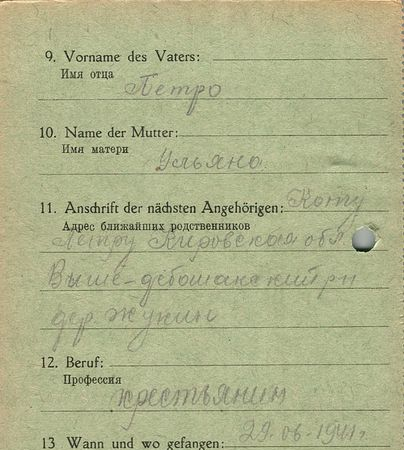 9. Vorname des Vaters:
Имя отца
Петро
10. Name der Mutter:
Имя матери
Ульяна
11. Anschrift der nächsten Angehörigen: Кому
Адрес ближайших родственников
Петру Кировская обл
Выше- р-н
дер. Жукин
12. Beruf:
Профессия
крестьянин
13 Wann und wo gefangen: 29.06.1941г